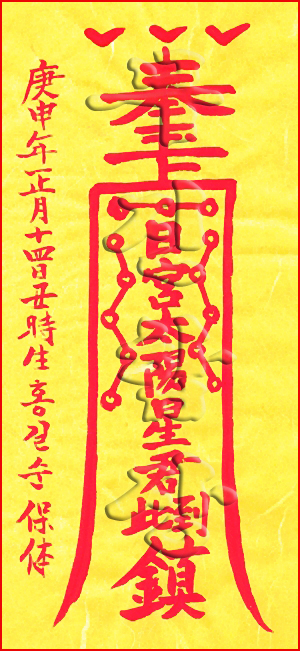 奉
日宮太陽星君到此鎮
庚申年正月十四日丑時生홍길순保体